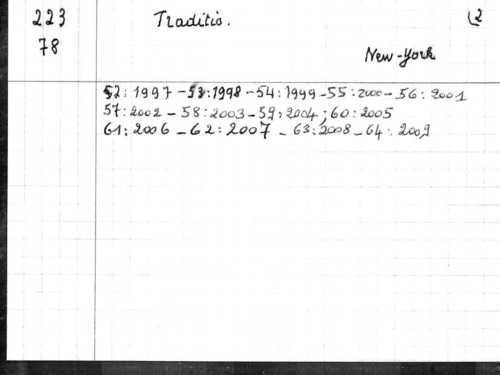 223 Traditio. (2
78
New-York
52: 1997 - 53: 1998 - 54: 1999 - 55: 2000 - 56: 2001
57: 2002 - 58: 2003 - 59: 2004; 60: 2005
61: 2006 - 62: 2007 - 63: 2008 - 64: 2009